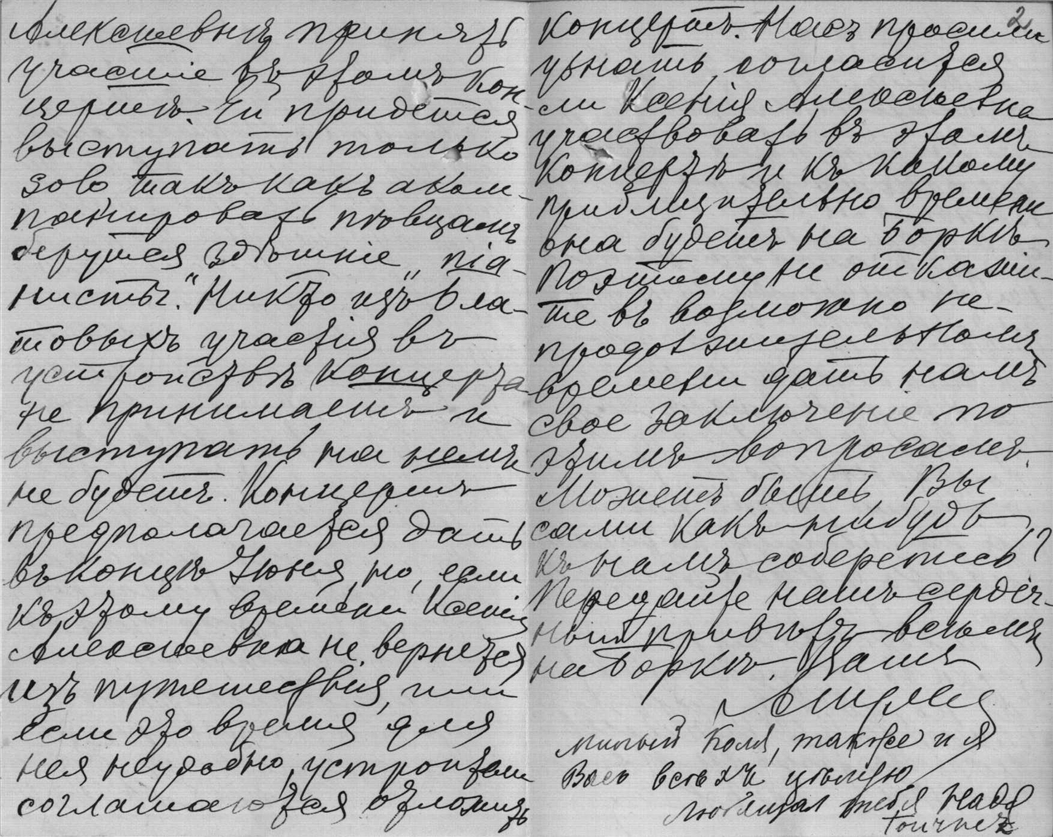 Алексѣевнѣ принять
участіе въ этомъ кон-
цертѣ. Ей придется
выступать только
соло такъ какъ аком-
панировать пѣвцамъ
берутся здѣшніе „піа-
нисты“. Никто изъ
товыхъ участія въ
устройствѣ Концерта
не принимаетъ и
выступать на немъ
не будетъ. Концертъ
предполагается дать
въ концѣ Іюня, но, если
къ этому времени Ксенія
Алексѣевна не вернется
изъ путешествія, или
если это время для
нея неудобно, устроители
соглашаются отложить
2
концертъ. Насъ просили
узнать согласится
ли Ксенія Алексѣевна
участвовать въ этомъ
концертѣ и къ какому
приблизительно времени
она будетъ на Боркѣ
Поэтому не откажи-
те въ возможно не-
продолжительномъ
времени дать намъ
свое заключеніе по
этимъ вопросамъ.
Можетъ быть Вы
сами какъ-нибудь
къ намъ соберетесь?
Передайте нашъ сердеч-
ный привѣтъ всѣмъ
на Боркѣ. Вашъ
Милый Коля, также и я
Васъ всѣхъ цѣлую
Любящая тебя Надя